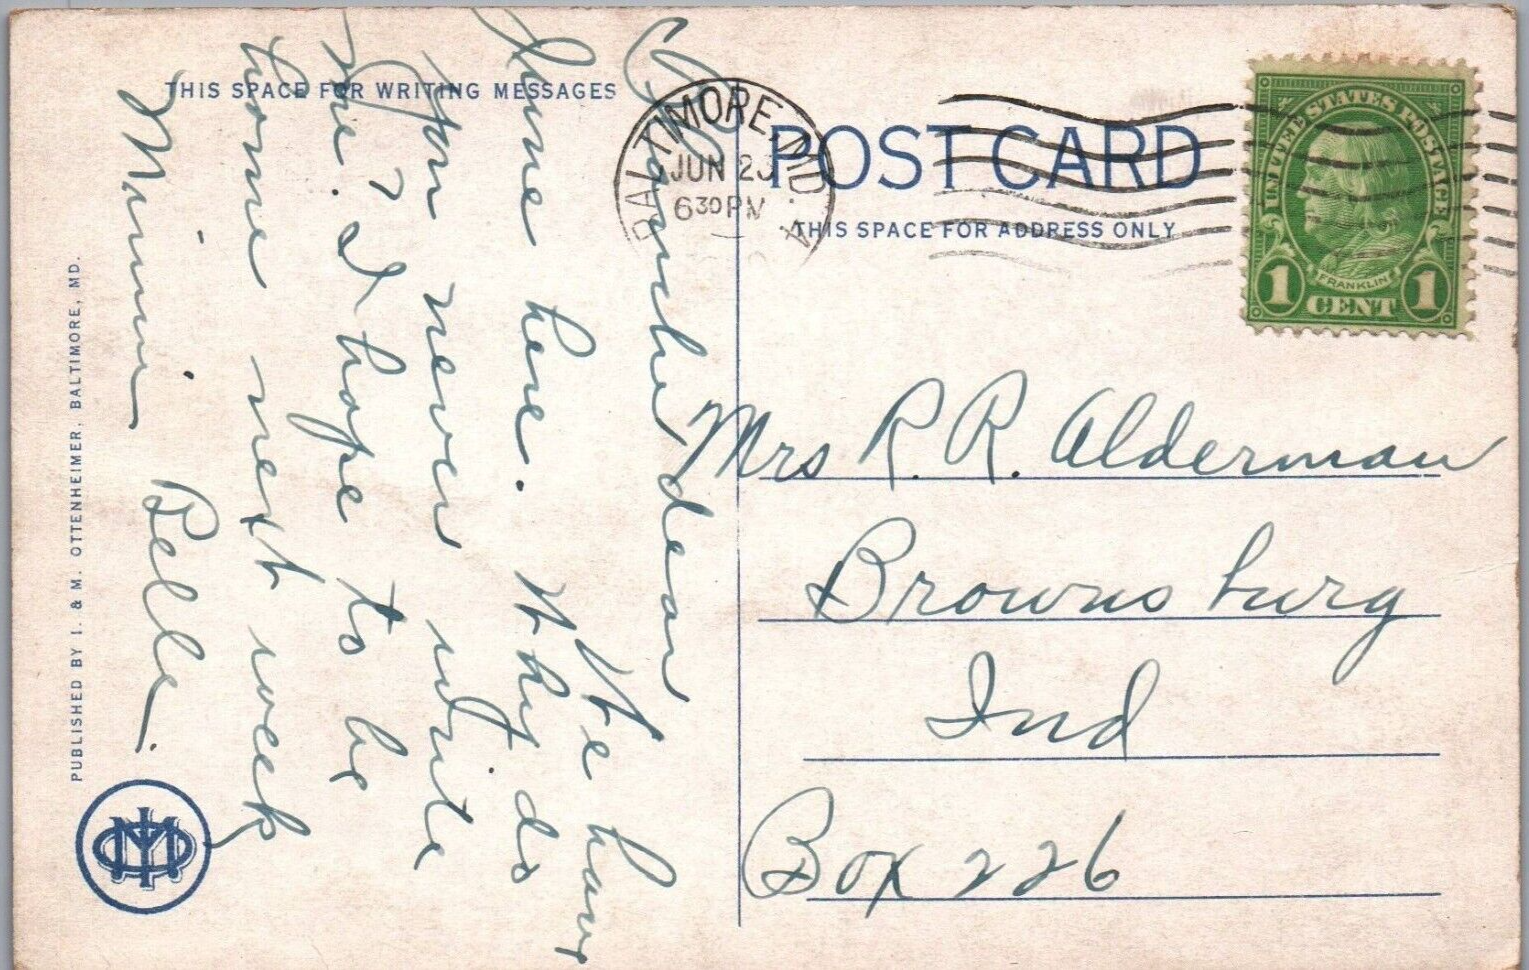 THIS SPACE FOR WRITING MESSAGES
Blanche dear
We have
June here. Why do
you never write
me? I hope to be
home next week
Minnie Belle.
PUBLISHED BY I. & M. OTTENHEIMER, BALTIMORE, MD.
BALTIMORE, MD.
JUN 23
630 PM
POST CARD
THIS SPACE FOR ADDRESS ONLY
UNITED STATES POSTAGE
FRANKLIN
1 CENT 1
Mrs R. R. Alderman
Brownsburg
Ind
Box 226